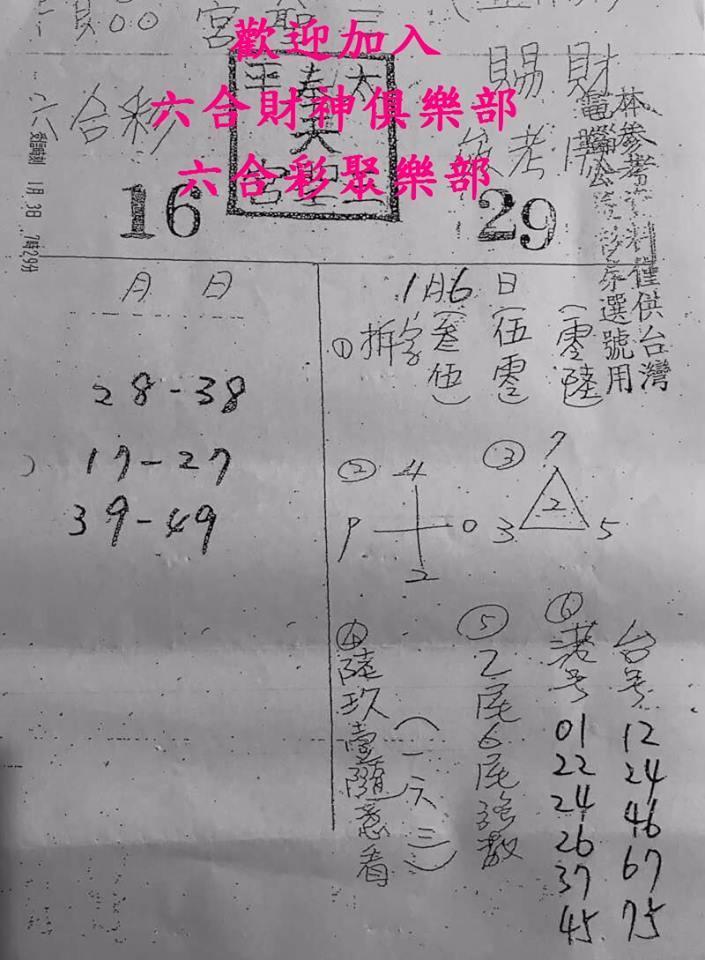 宮聖三
歡迎加入
六合財神俱樂部
六合彩聚樂部
六合彩
太
平
英
三聖宮
賜財
參考
16
29
1月3日 7時29分
本參考資料僅供台灣
電腦公
選號用
月 日
28-38
17-27
39-49
1月6日
① 拆字(叁伍)
(伍零)
(零陸)
②
4
9 0
2
③
7
2
3 5
④ 陸玖壹隨意看
(一六三)
⑤ 2尾6尾強数
⑥ 港号
01
22
24
26
37
45
台号
12
24
46
67
75